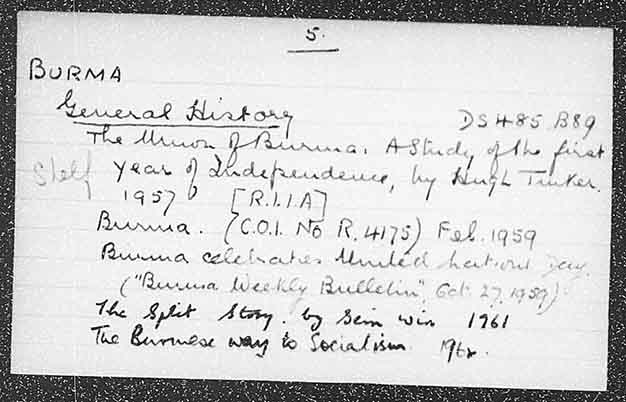 5.
BURMA
General History
DS485 B89
The Union of Burma. A Study of the first
Shelf year of Independence, by Hugh Tinker.
1957 [R.I.I.A]
Burma. (C.O.I. No R. 4175) Feb. 1959
Burma celebrates United Nations Day.
("Burma Weekly Bulletin", Oct. 27, 1959)
The Split Story. by Sein Win 1961
The Burmese way to Socialism.